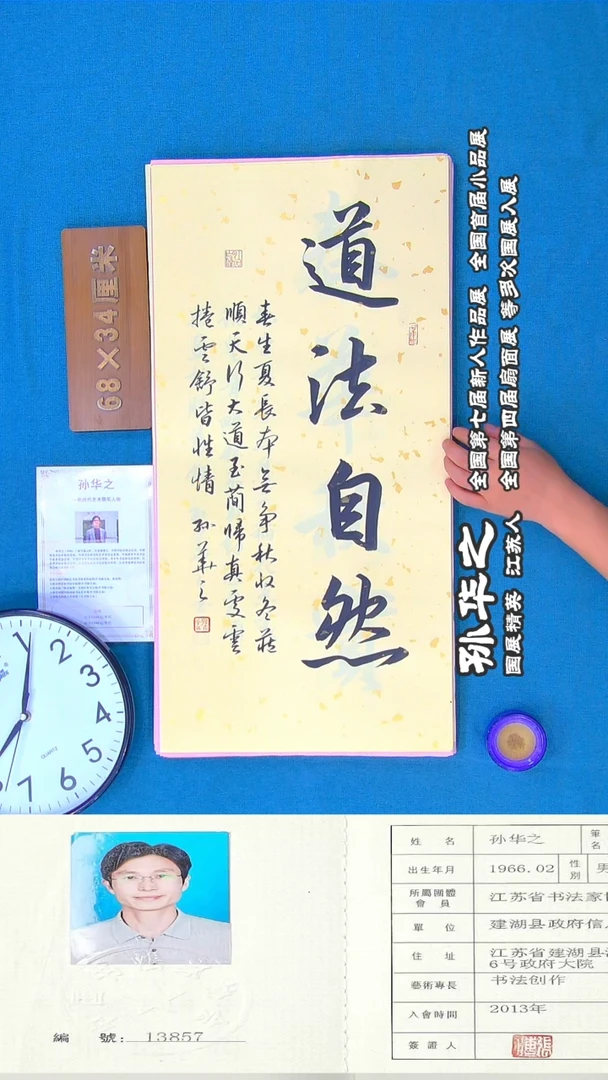 道法自然
春生夏長本無爭秋收冬藏
順天行大道至簡歸真處雲
捲雲舒皆性情 孫華之
68×34厘米
孙华之
全国第七届新人作品展 全国首届小品展
全国第四届扇面展 等多次国展入展
孙华之
国展精英 江苏人
1
2
3
4
5
6
7
QUARTZ
編 號: 13857
姓 名 孙华之 筆名
出生年月 1966.02 性別 男
所屬團體會員 江苏省书法家
單 位 建湖县政府信
住 址 江苏省建湖县
6号政府大院
藝術專長 书法创作
入會時間 2013年
簽證人